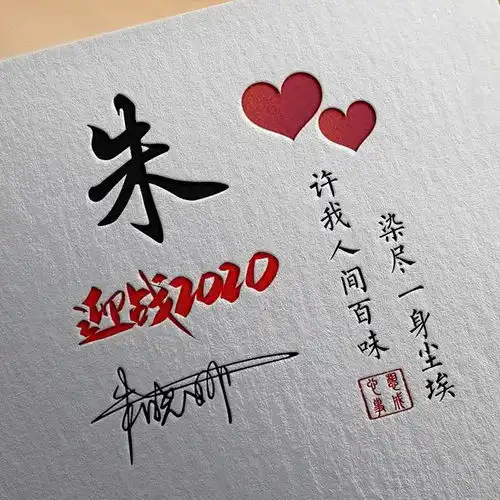 朱
迎战2020
许我人间百味
染尽一身尘埃
心想
事成